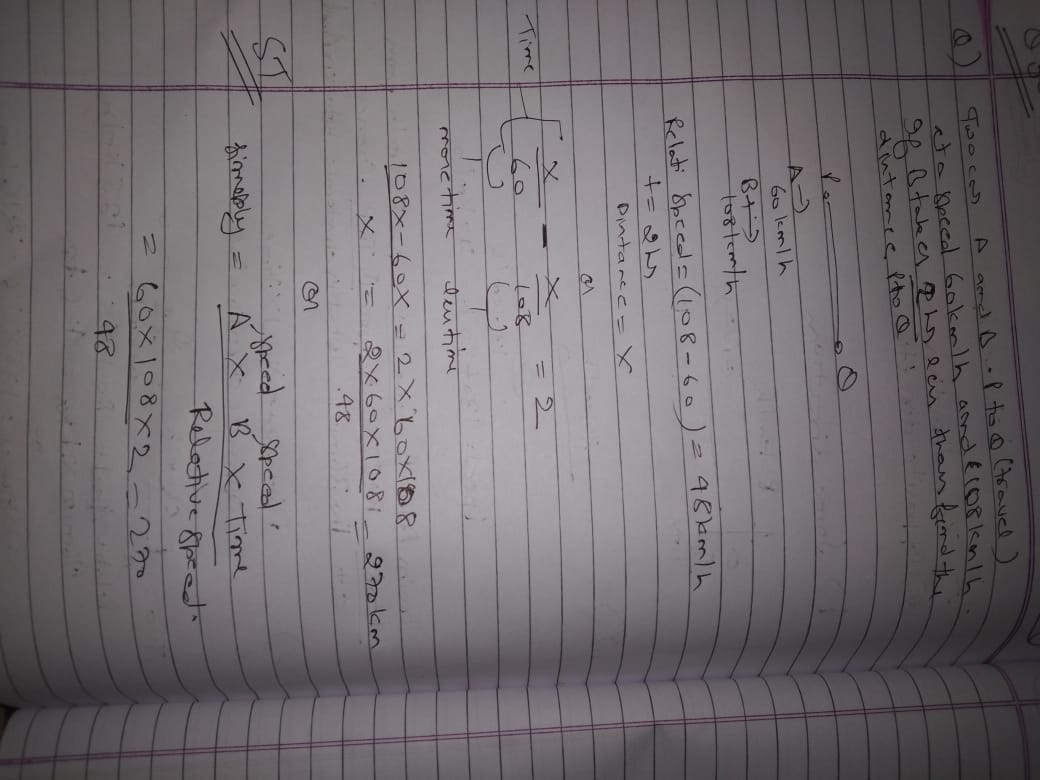 Q) Two cars A and B . P to Q (travel)
at a speed 60km/h and 108km/h.
If B takes 2 hrs less than find the
distance P to Q
P Q
A →
60 km/h
B →
108 km/h
Relati speed = (108 - 60) = 48 km/h
t = 2 hrs
Distance = x
or
Time x/60 - x/108 = 2
more time less time
108x - 60x = 2 x 60 x 108
x = 2 x 60 x 108 / 48 = 270 km
or
ST
simply = A speed x B speed x Time / Relative speed.
= 60 x 108 x 2 / 48 = 270